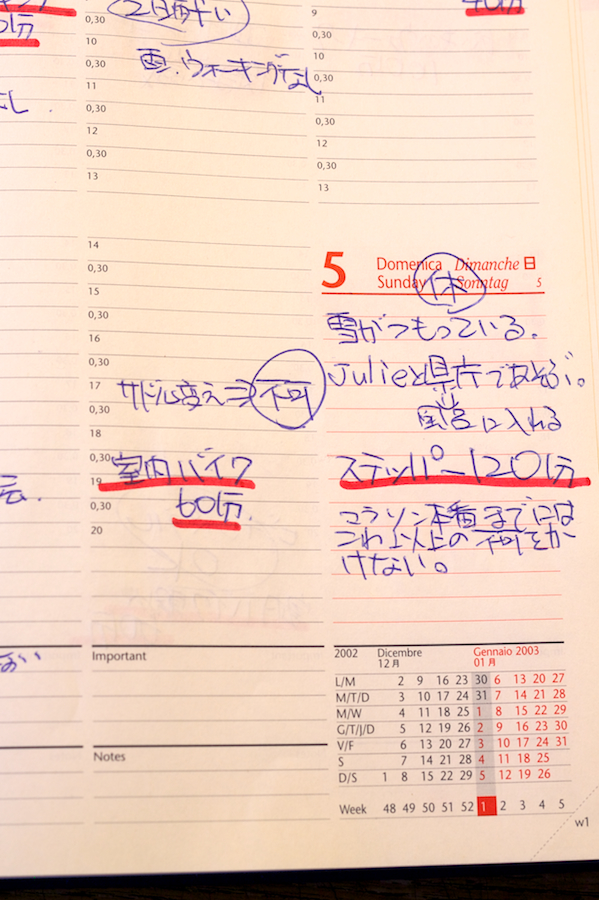 0分
し.
9
0,30
10
0,30
11
0,30
12
0,30
13
2日酔い
雪.ウォーキングなし
14
0,30
15
0,30
16
0,30
17
0,30
18
0,30
19
0,30
20
サドル変え⇒不可
室内バイク
60分.
Important
Notes
9
10
0,30
11
0,30
12
0,30
13
40分
5 Domenica Dimanche 日
Sunday Sonntag 5
休
雪がつもっている.
Julieと県庁であそぶ。
風呂に入れる
ステッパー120分
マラソン本番までには
これ以上の不可をか
けない。
2002 Dicembre Gennaio 2003
12月 01月
L/M 2 9 16 23 30 6 13 20 27
M/T/D 3 10 17 24 31 7 14 21 28
M/W 4 11 18 25 1 8 15 22 29
G/T/J/D 5 12 19 26 2 9 16 23 30
V/F 6 13 20 27 3 10 17 24 31
S 7 14 21 28 4 11 18 25
D/S 1 8 15 22 29 5 12 19 26
Week 48 49 50 51 52 1 2 3 4 5
w1